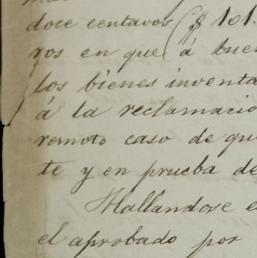 doce centavos ($ 101.
ros en que á bue
los bienes inventa
á la reclamacio
remoto caso de qu
te y en prueba de
Hallandose e
el aprobado por